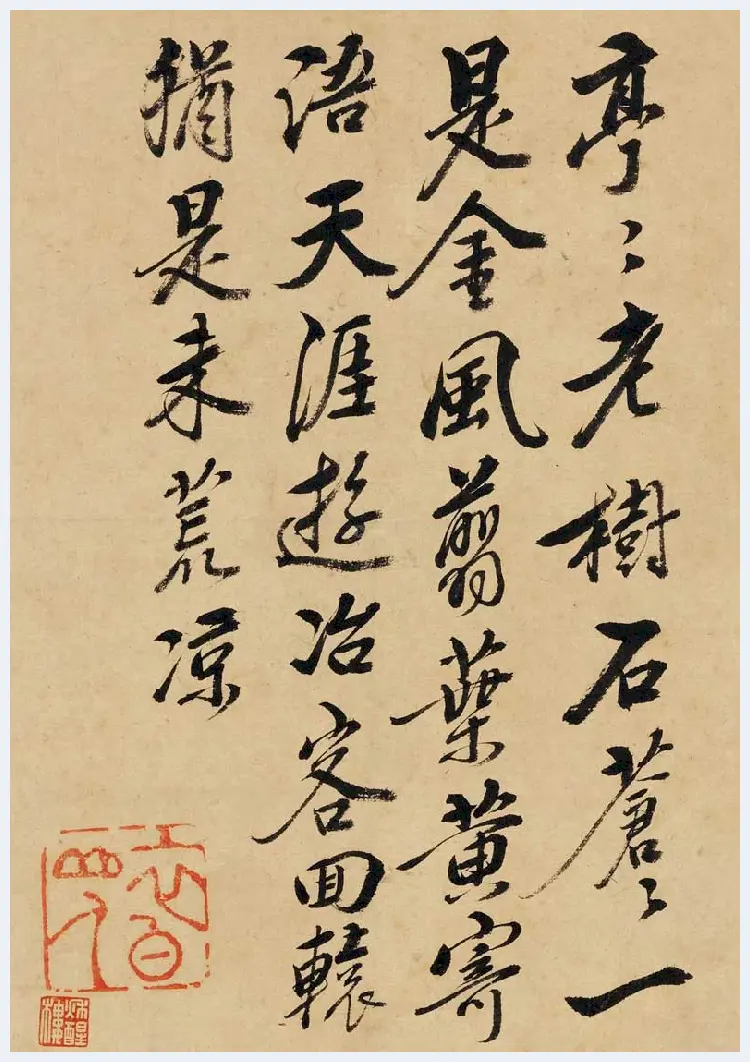 亭〻老樹石蒼〻一
是金風翦葉黄寄
語天涯遊冶客回轅
猶是未荒凉